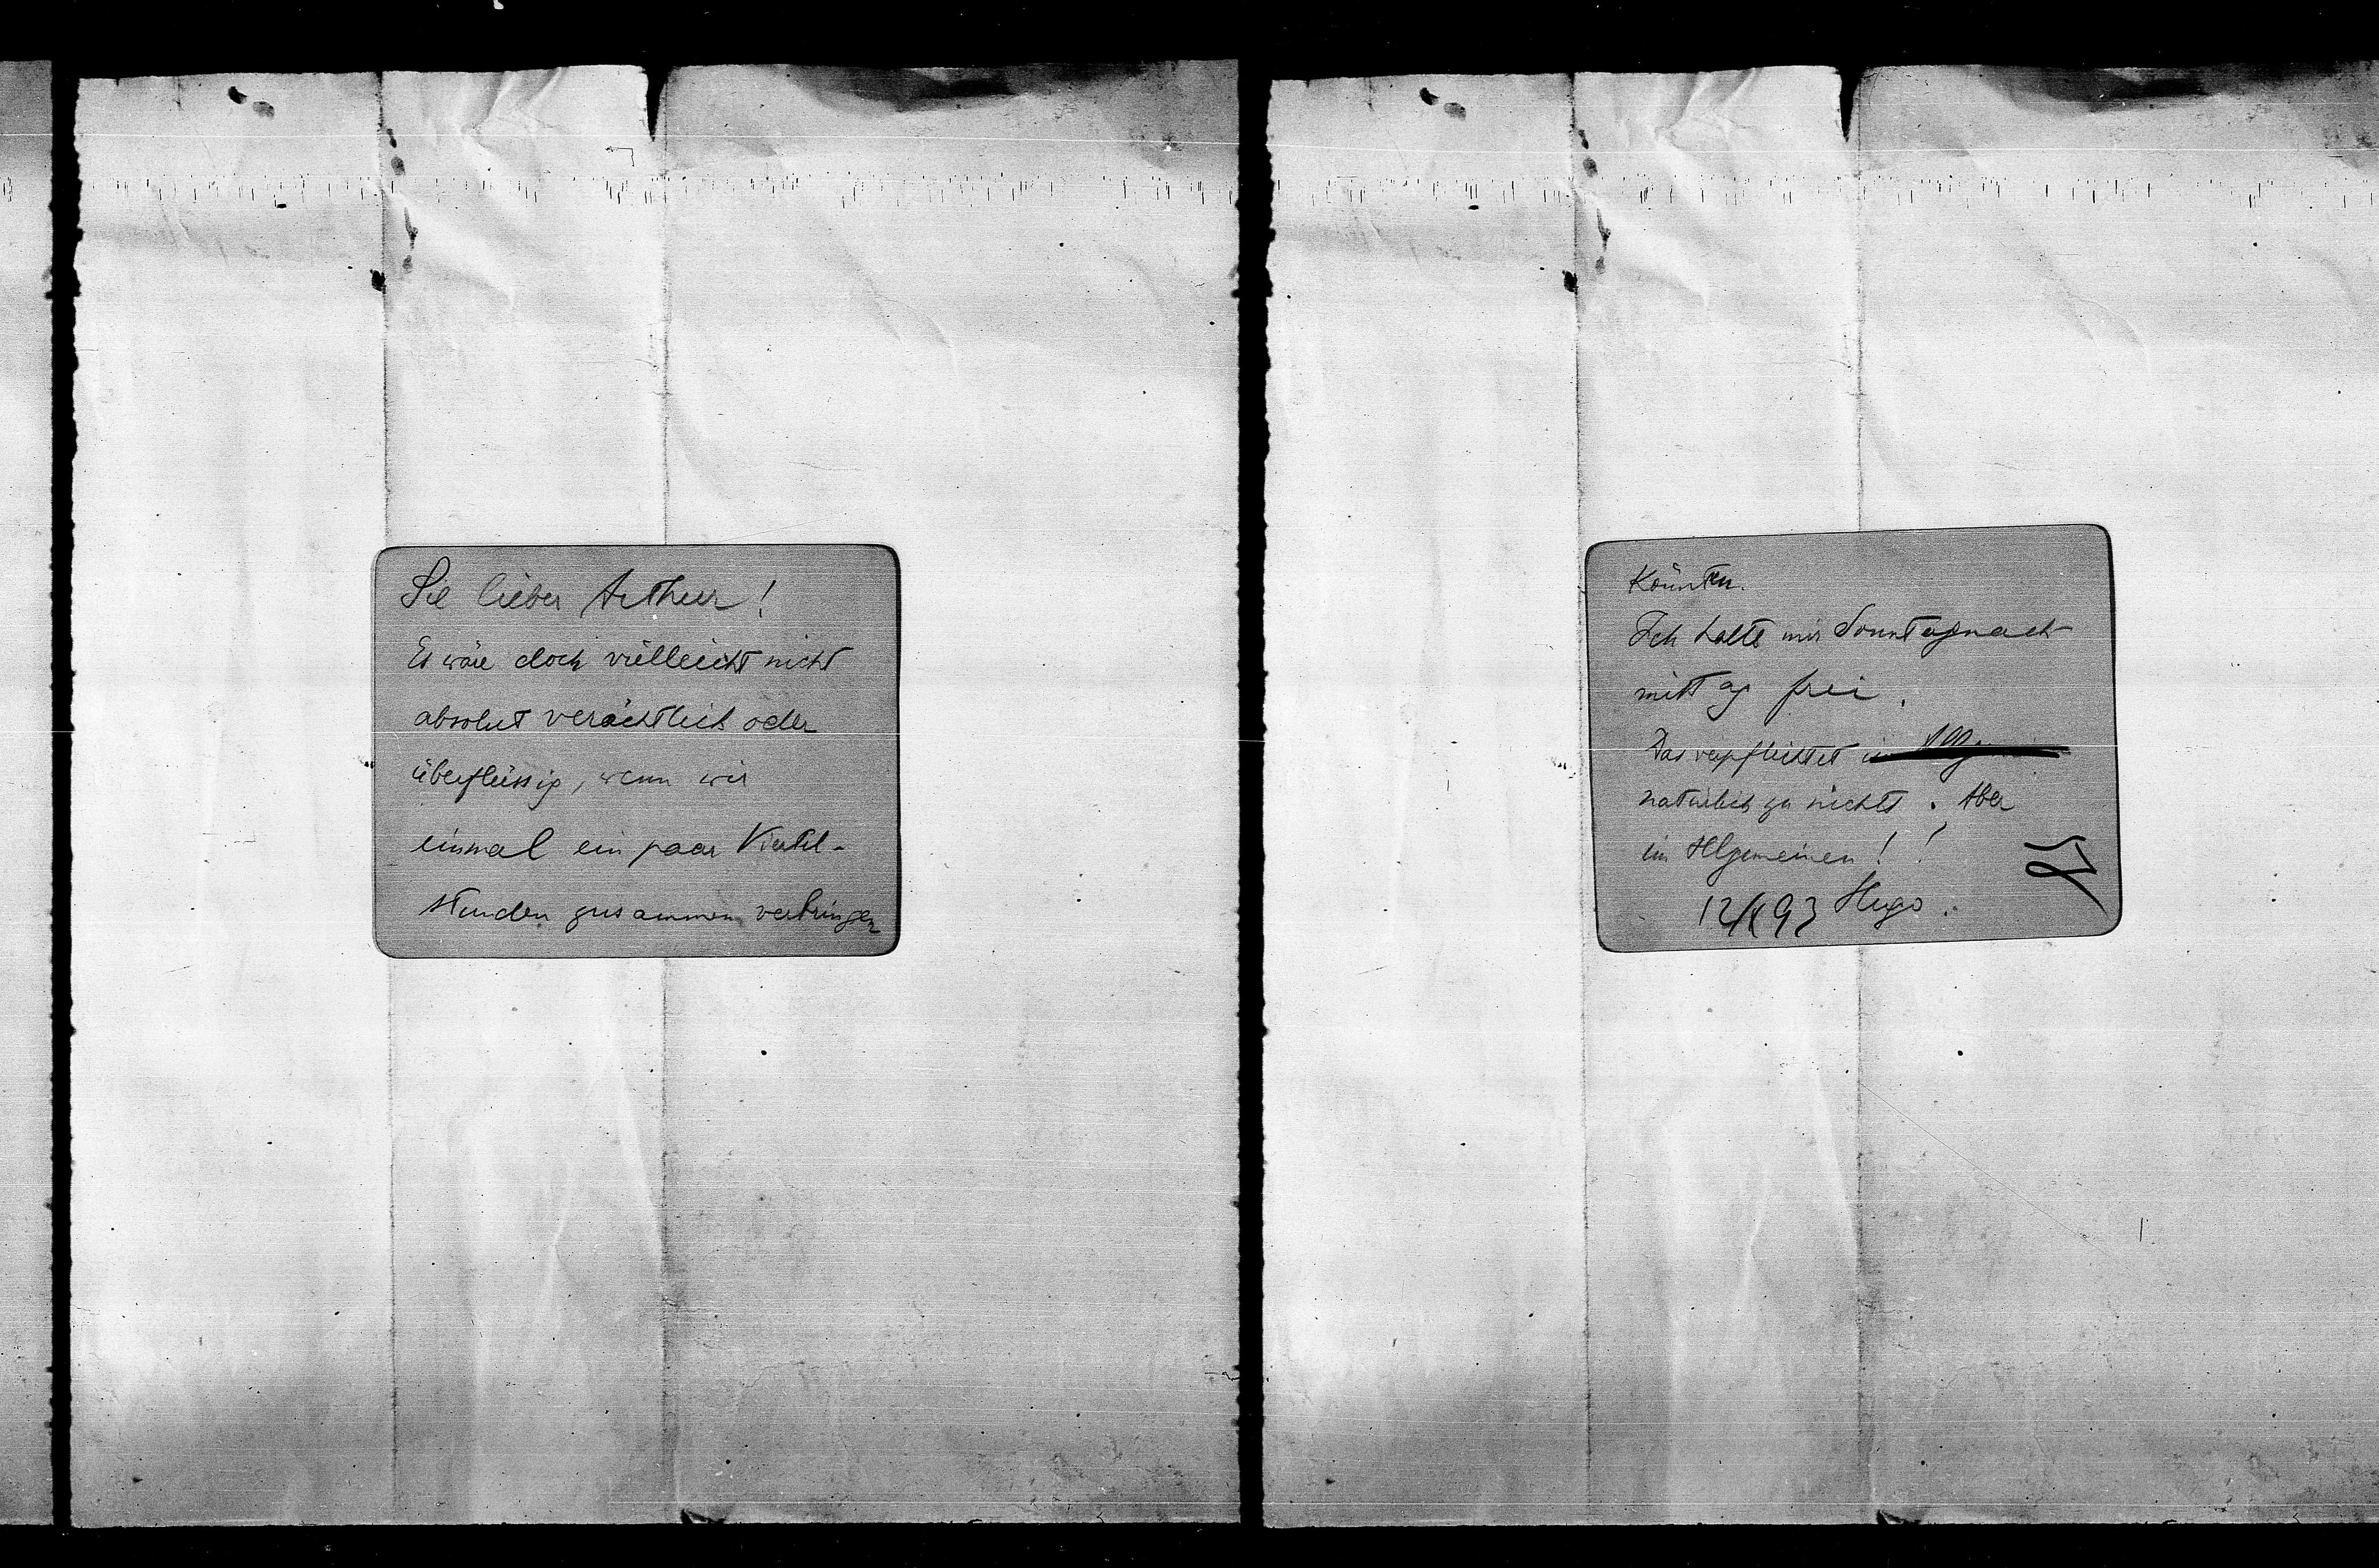 Sie lieber Arthur!
Es wäre doch vielleicht nicht
absolut verächtlich oder
überflüssig, wenn wir
einmal ein paar Viertel-
stunden zusammen verbringen
könnten.
Ich halte mir Sonntagnach
mittag frei.
Das verpflichtet im Allgemeinen
natürlich zu nichts. Aber
im Allgemeinen!!
Hugo.
12/X 93